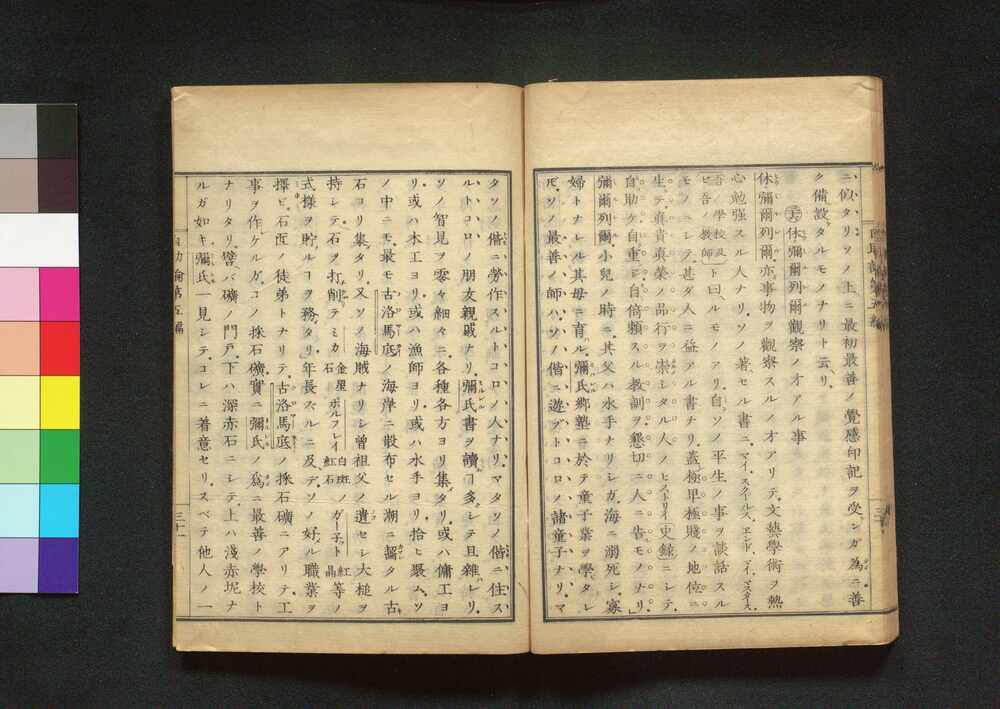 ニ似タリソノ上ニ最初最善ノ覺感印記ヲ受ンガ為ニ善
ク備設タルモノナリト云リ
休彌爾列爾觀察ノオアル事
休彌爾列爾亦事物ヲ觀察スルノオアリテ文藝學術ヲ熱
心勉强スル人ナリソノ著セル書ニマイスクールスエンドマイマスタース
吾ノ學校及ト曰ルモノアリ自ソノ平生ノ事ヲ談話スル
ビ吾ノ教師
モノニシテ甚ダ人ニ益アル書ナリ蓋極卑極賤ノ地位ニ
生テ真貴真榮ノ品行ヲ崇シタル人ノヒストリイ史錄ニシテ
自助ケ自重ジ自倚頼スル教訓ヲ懇切ニ人ニ告モノナリ
彌爾列爾小兒ノ時ニ其父ハ水手ナリシガ海ニ溺死シ寡
婦トナレル其母ニ育ハル彌氏鄉塾ニ於テ童子業ヲ學タレ
𪜈ソノ最善ノ師ハソノ偕ニ遊ブトコロノ諸童子ナリマ
タソノ偕ニ勞作スルトコロノ人ナリマタソノ偕ニ住ス
ルトコロノ朋友親戚ナリ彌氏書ヲ讀ヿ多シテ且雜ハレリ
ソノ智見ヲ零々細々ニ各種各方ヨリ集タリ或ハ傭工ヨ
リ或ハ木工ヨリ或ハ漁師ヨリ或ハ水手ヨリ拾ヒ聚ムソ
ノ中ニモ最モ古洛馬底ノ海岸ニ散布セル潮ニ齧タル古
石ヨリ集タリ又ソノ海賊ナリシ曾祖父ノ遺セシ大槌ヲ
持シテ石ヲ打削テミカ金星石ポルフレイ白斑紅石ノガーチット紅晶等ノ
式樣ヲ貯ルコヲ務タリ年長スルニ及デソノ好ル職業ヲ
擇ビ石匠ノ徒弟トナリテ古洛馬底ノ採石礦ニアリテ工
事ヲ作ケルガコノ採石礦實ニ彌氏ノ為ニ最善ノ學校ト
ナリタリ譬バ礦ノ門戸下ハ深赤石ニシテ上ハ淺赤坭ナ
ルガ如キ彌氏一見シテコレニ着意セリスベテ他人ノ一
第五編
三十一